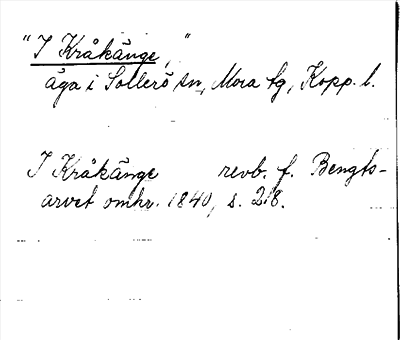 "I Kråkänge,"
äga i Sollerö sn, Mora tg, Kopp. l.
I Kråkänge revb. f. Bengts-
arvet omkr. 1840, s. 218.